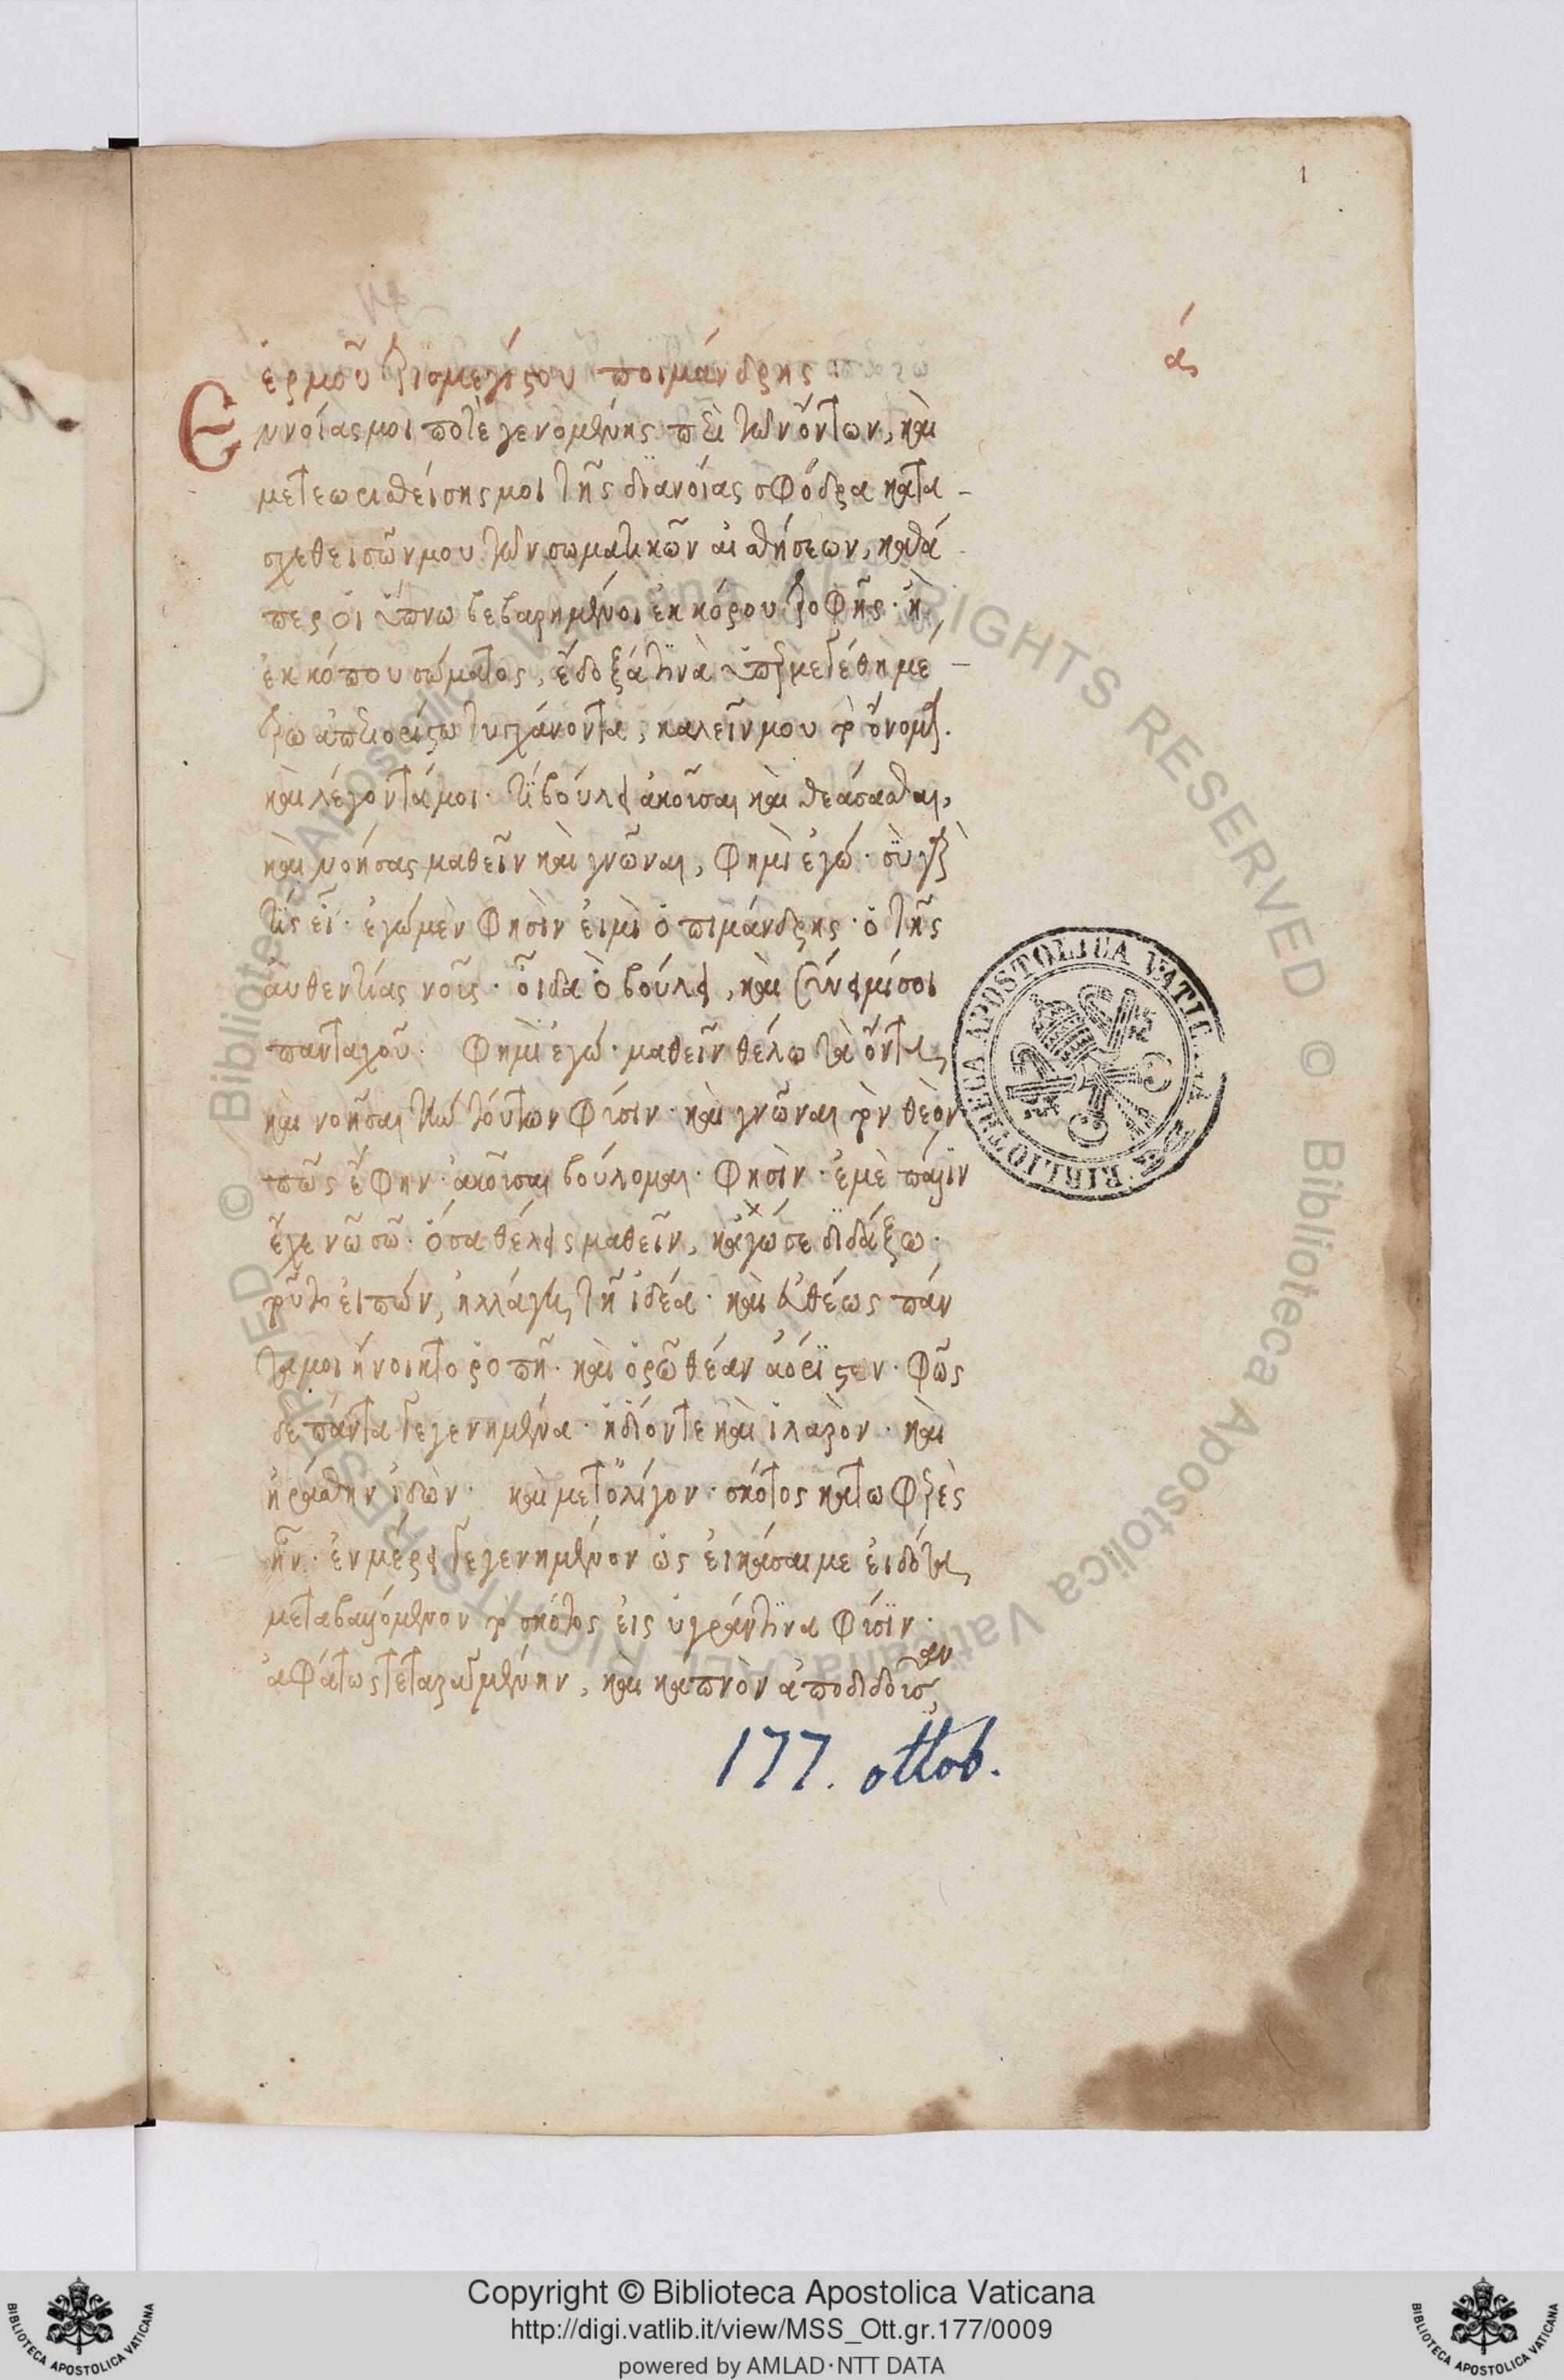 1
ά
ἑρμοῦ τρισμεγίστου ποιμάνδρης
Ἐννοίας μοι ποτὲ γενομένης περὶ τῶν ὄντων, καὶ
μετεωρισθείσης μοι τῆς διανοίας σφόδρα κατα-
σχεθεισῶν μου τῶν σωματικῶν αἰσθήσεων, καθά
περ οἱ ὕπνω βεβαρημένοι ἐκ κόρου τροφῆς· ἢ
ἐκ κόπου σώματος, ἔδοξά τινα ὑπερμεγέθη μέ-
τρω ἀπεριορίστω τυγχάνοντα, καλεῖν μου τὸ ὄνομα.
καὶ λέγοντά μοι· τί βούλει ἀκοῦσαι καὶ θεάσασθαι,
καὶ νοήσας μαθεῖν καὶ γνῶναι, φημὶ ἐγώ· σὺ γὰρ
τίς εἶ· ἐγὼ μὲν φησὶν εἰμὶ ὁ πιμάνδρης· ὁ τῆς
αὐθεντίας νοῦς· οἶδα ὃ βούλει, καὶ σύνειμί σοι
πανταχοῦ. φημὶ ἐγώ· μαθεῖν θέλω τὰ ὄντα,
καὶ νοῆσαι τὴν τούτων φύσιν· καὶ γνῶναι τὸν θεὸν·
πῶς ἔφην· ἀκοῦσαι βούλομαι· φησὶν· ἐμὲ πάλιν
ἔχε νῶ σῶ· ὅσα θέλεις μαθεῖν, κἀγώ σε διδάξω·
τοῦτο εἰπὼν, ἠλλάγη τῆ ἰδέα· καὶ εὐθέως πάν
τα μοι ἤνοικτο ῥοπῆ· καὶ ὁρῶ θέαν ἀόριστον· φῶς
δὲ πάντα γεγενημένα· ἡδιόν τε καὶ ἱλαρὸν· καὶ
ἠράσθην ἰδὼν· καὶ μετ' ὀλίγον· σκότος κατωφερὲς
ἦν· ἐν μέρει γεγενημένον ὡς εἰκάσαι με εἰδότα,
μεταβαλλόμενον τὸ σκότος εἰς ὑγράν τινα φύσιν·
ἀφάτως τεταραγμένην, καὶ καπνὸν ἀποδιδοῦσαν,
177. ottob.
BIBLIOTHECA APOSTOLICA VATICANA
© Biblioteca Apostolica Vaticana ALL RIGHTS RESERVED © Biblioteca Apostolica Vaticana ALL RIGHTS RESERVED
Copyright © Biblioteca Apostolica Vaticana
http://digi.vatlib.it/view/MSS_Ott.gr.177/0009
powered by AMLAD·NTT DATA
BIBLIOTECA APOSTOLICA VATICANA
BIBLIOTECA APOSTOLICA VATICANA